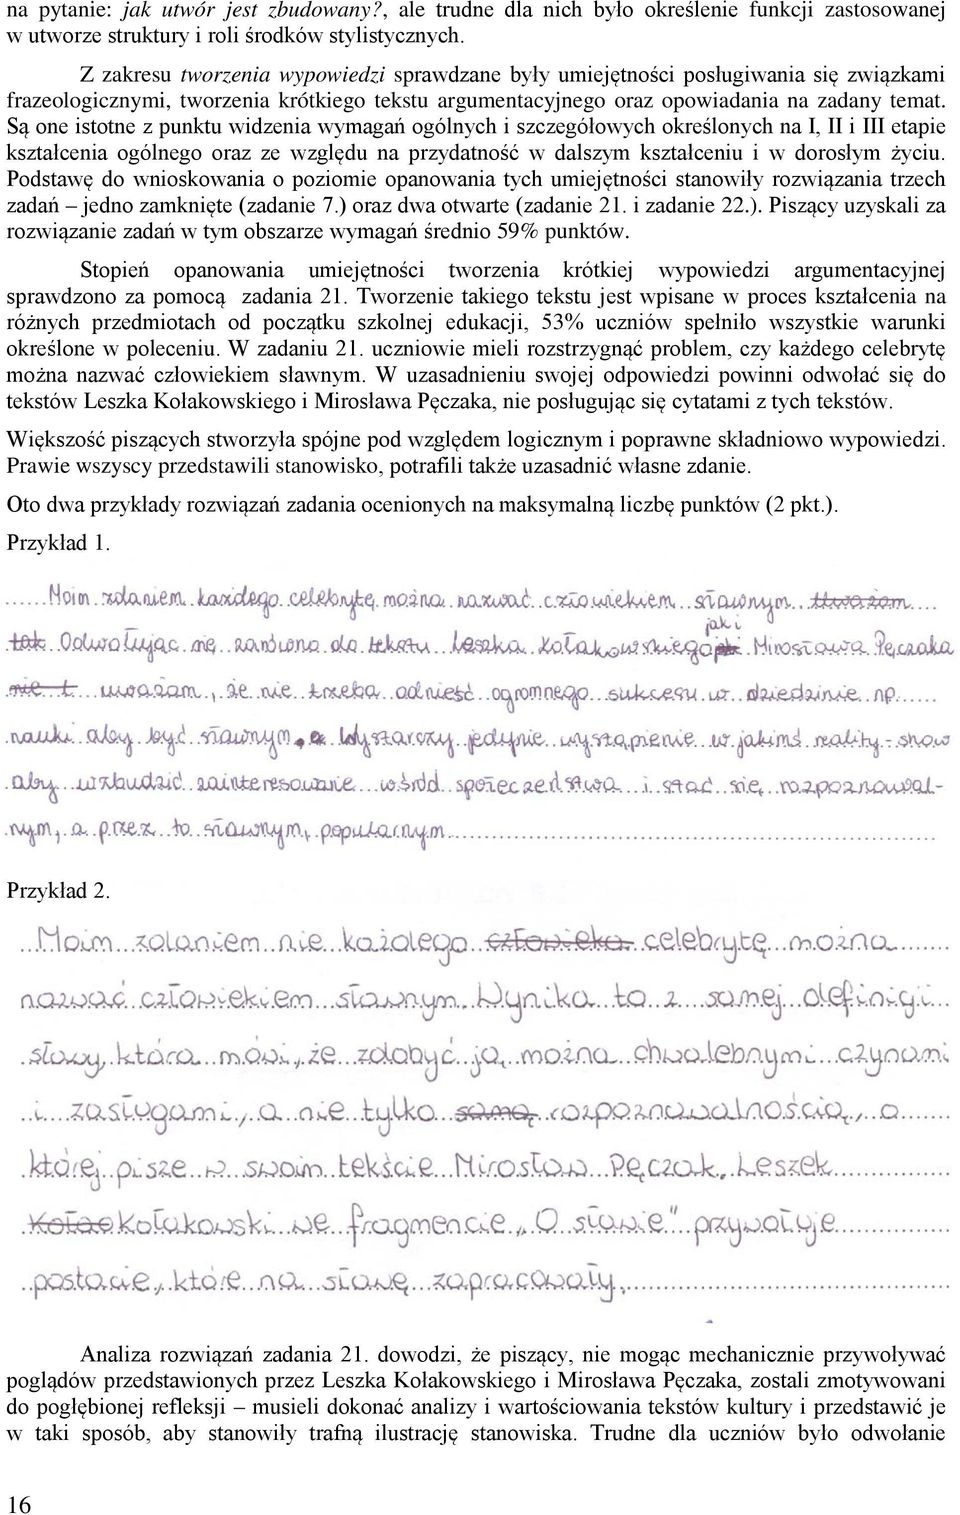 na pytanie: jak utwór jest zbudowany?, ale trudne dla nich było określenie funkcji zastosowanej
w utworze struktury i roli środków stylistycznych.
Z zakresu tworzenia wypowiedzi sprawdzane były umiejętności posługiwania się związkami
frazeologicznymi, tworzenia krótkiego tekstu argumentacyjnego oraz opowiadania na zadany temat.
Są one istotne z punktu widzenia wymagań ogólnych i szczegółowych określonych na I, II i III etapie
kształcenia ogólnego oraz ze względu na przydatność w dalszym kształceniu i w dorosłym życiu.
Podstawę do wnioskowania o poziomie opanowania tych umiejętności stanowiły rozwiązania trzech
zadań – jedno zamknięte (zadanie 7.) oraz dwa otwarte (zadanie 21. i zadanie 22.). Piszący uzyskali za
rozwiązanie zadań w tym obszarze wymagań średnio 59% punktów.
Stopień opanowania umiejętności tworzenia krótkiej wypowiedzi argumentacyjnej
sprawdzono za pomocą zadania 21. Tworzenie takiego tekstu jest wpisane w proces kształcenia na
różnych przedmiotach od początku szkolnej edukacji, 53% uczniów spełniło wszystkie warunki
określone w poleceniu. W zadaniu 21. uczniowie mieli rozstrzygnąć problem, czy każdego celebrytę
można nazwać człowiekiem sławnym. W uzasadnieniu swojej odpowiedzi powinni odwołać się do
tekstów Leszka Kołakowskiego i Mirosława Pęczaka, nie posługując się cytatami z tych tekstów.
Większość piszących stworzyła spójne pod względem logicznym i poprawne składniowo wypowiedzi.
Prawie wszyscy przedstawili stanowisko, potrafili także uzasadnić własne zdanie.
Oto dwa przykłady rozwiązań zadania ocenionych na maksymalną liczbę punktów (2 pkt.).
Przykład 1.
Moim zdaniem każdego celebrytę można nazwać człowiekiem sławnym Uważam
tak Odwołując się zarówno do tekstu Leszka Kołakowskiego jak i Mirosława Pęczaka
nie t uważam, że nie trzeba odnieść ogromnego sukcesu w dziedzinie np.
nauki aby być sławnym. Wystarczy jedynie wystąpienie w jakimś reality-show
aby wzbudzić zainteresowanie wśród społeczeństwa i stać się rozpoznawal-
nym, a przez to sławnym, popularnym
Przykład 2.
Moim zdaniem nie każdego człowieka celebrytę można
nazwać człowiekiem sławnym. Wynika to z samej definicji
sławy, która mówi, że zdobyć ją można chwalebnymi czynami
i zasługami, a nie tylko samą rozpoznawalnością, o
której pisze w swoim tekście Mirosław Pęczak. Leszek
Kołac Kołakowski we fragmencie „O sławie" przywołuje
postacie, które na sławę zapracowały.
Analiza rozwiązań zadania 21. dowodzi, że piszący, nie mogąc mechanicznie przywoływać
poglądów przedstawionych przez Leszka Kołakowskiego i Mirosława Pęczaka, zostali zmotywowani
do pogłębionej refleksji – musieli dokonać analizy i wartościowania tekstów kultury i przedstawić je
w taki sposób, aby stanowiły trafną ilustrację stanowiska. Trudne dla uczniów było odwołanie
16